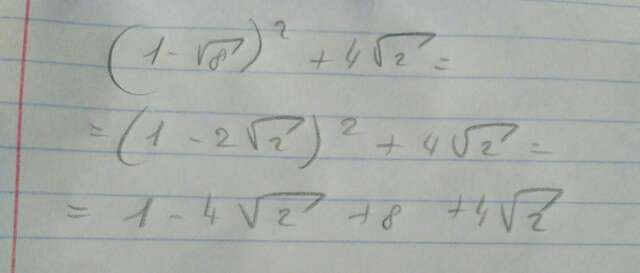 (1 - √8)² + 4√2 =
= (1 - 2√2)² + 4√2 =
= 1 - 4√2 + 8 + 4√2